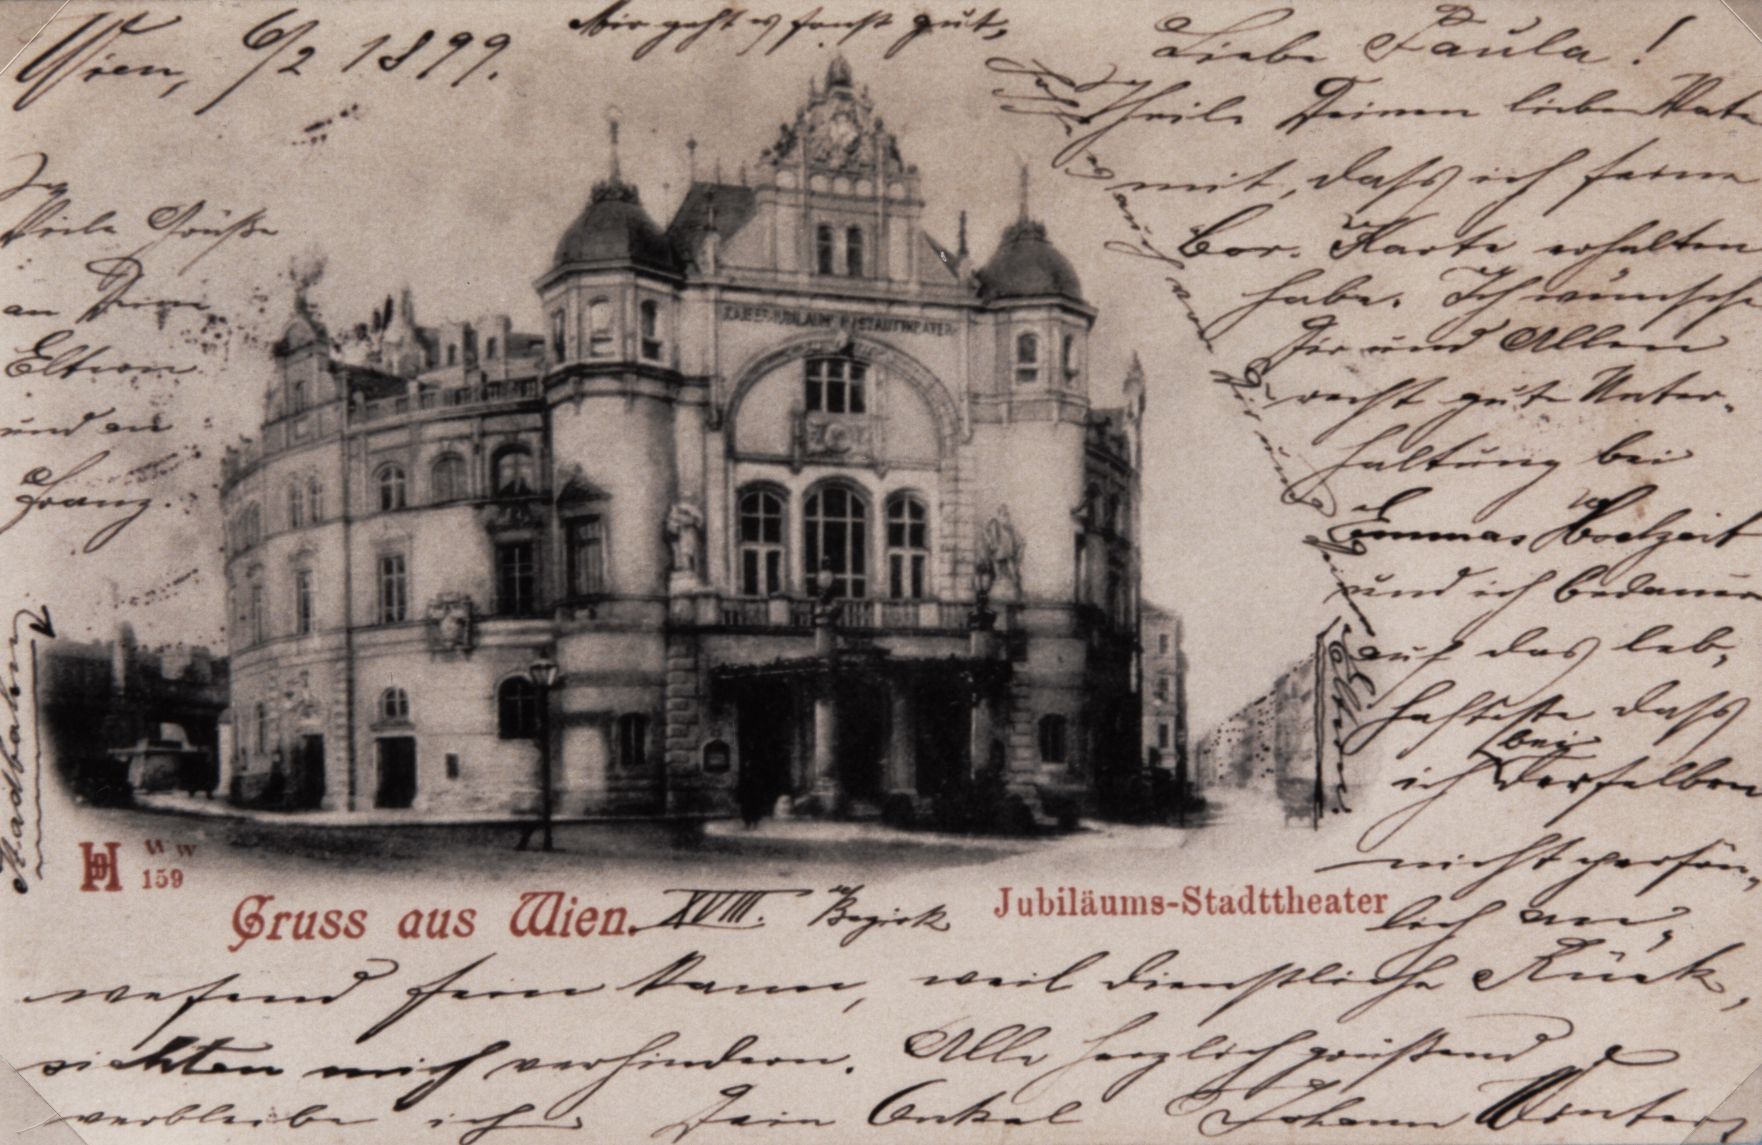 Wien, 6/2 1899.
Mir geht es sonst gut,
Liebe Paula!
Theile Deinem lieben Vater
mit, daß ich seine
Cor. Karte erhalten
habe. Ich wünsche
Dir und Allen
recht gute Unter-
haltung bei
Emmas Hochzeit
und ich bedauere
auf das leb-
hafteste daß
ich bei derselben
nicht persön-
lich an-
wesend sein kann, weil dienstliche Rück-
sichten mich verhindern. Alle herzlich grüßend
verbleibe ich Dein Onkel Johann Winter
auch von Dir und Eltern
Viele Grüße
an Deine
Eltern
und an
Franz.
Stadtbahn
KAISER-JUBILÄUMS-STADTTHEATER
HD
W W
159
Gruss aus Wien. XVIII. Bezirk
Jubiläums-Stadttheater